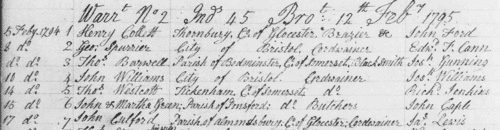 Warrt. No 2 Ind 45 Brot. 12th Feby 1795
5 Feby. 1794 1 Henry Collett Thornbury, Co. of Glocester Brazier &c John Ford
8 do. 2 Geo. Spurrier City of Bristol Cordwainer Edwd. T. Cann
do do. 3 Thos. Barwell Parish of Bedminster, C. of Somerset, Black Smith Jos. Gunning
10 do. 4 John Williams City of Bristol Cordwainer Jos. Williams
14 do 5 Thos. Westcott Tickenham, C. of Somerset do Richd. Jenkins
15 do 6 John & Martha Green; Parish of do. Butchers John Caple
17 do. 7 John Parish of Almondsbury C. of Glocester; Cordwainer Jas. Lewis